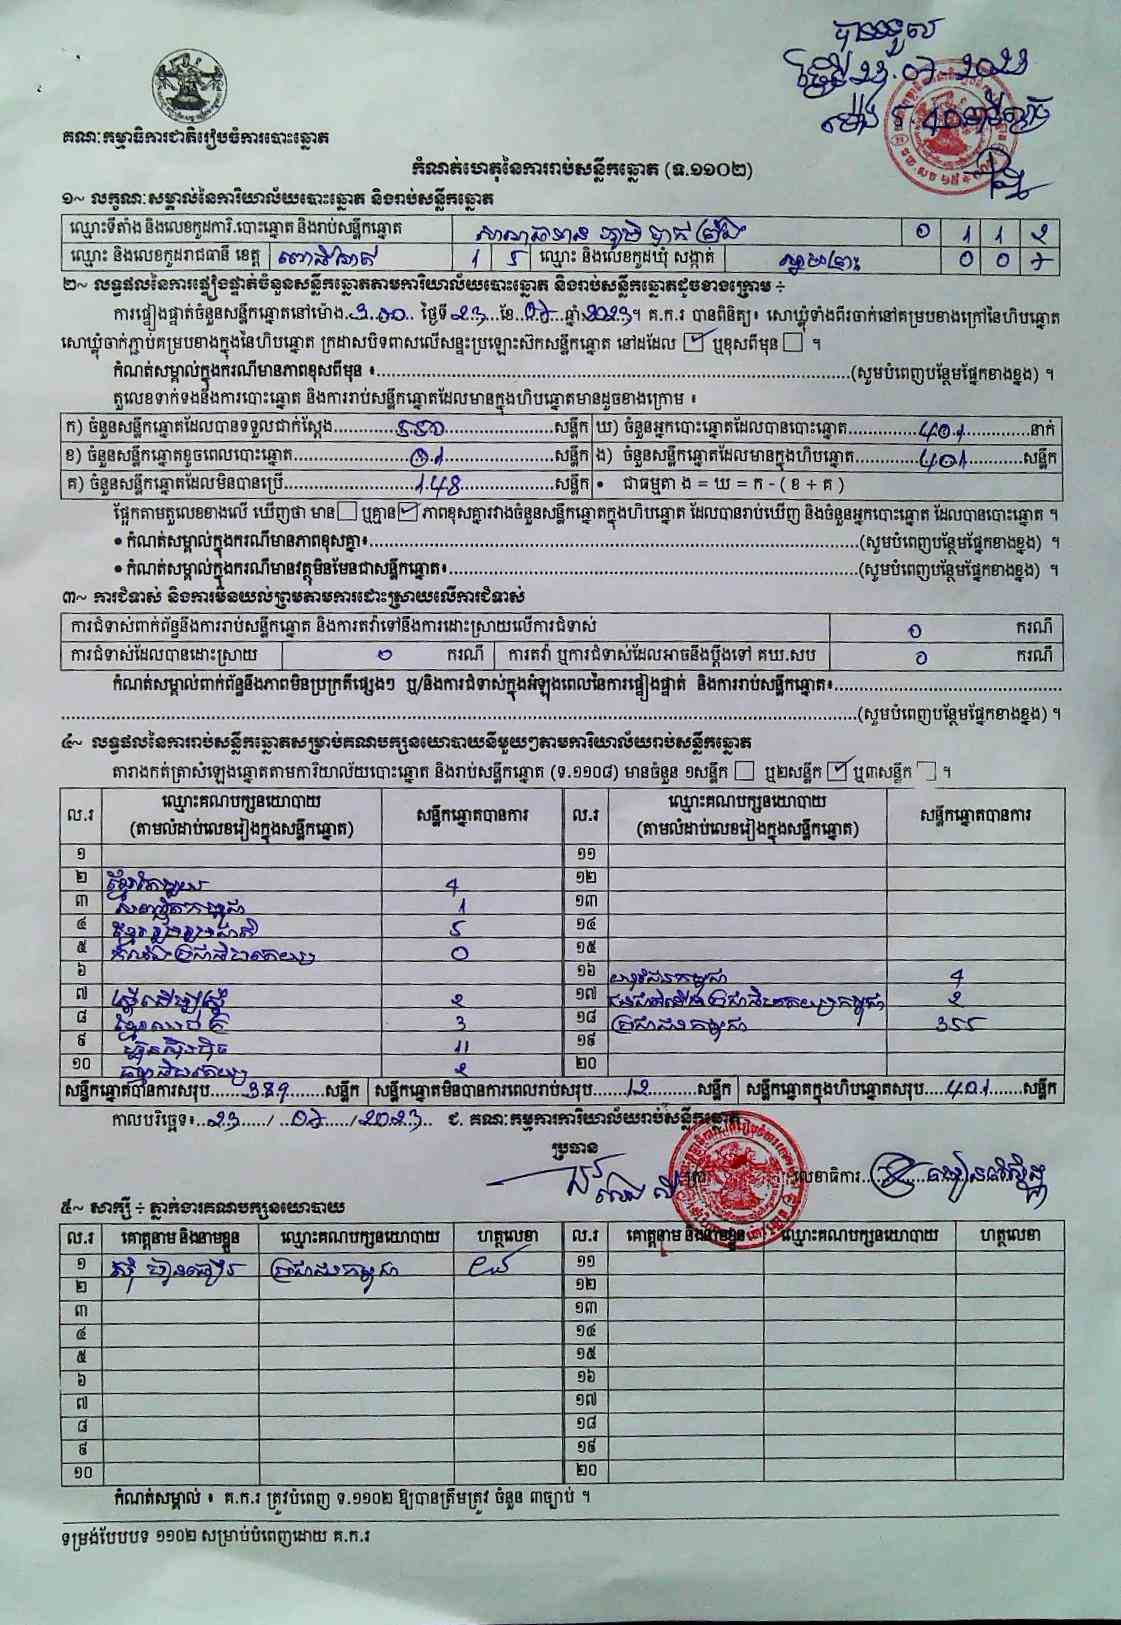 បានទទួល
គណៈកម្មាធិការជាតិរៀបចំការបោះឆ្នោត
កំណត់ហេតុនៃការរាប់សន្លឹកឆ្នោត (ទ.១១០២)
១~ លក្ខណៈសម្គាល់នៃការិយាល័យបោះឆ្នោត និងរាប់សន្លឹកឆ្នោត
ឈ្មោះទីតាំង និងលេខកូដការិ.បោះឆ្នោត និងរាប់សន្លឹកឆ្នោត 0 1 1 2
ឈ្មោះ និងលេខកូដរាជធានី ខេត្ត ពោធិ៍សាត់ 1 5 ឈ្មោះ និងលេខកូដឃុំ សង្កាត់ 0 0 7
២~ លទ្ធផលនៃការផ្ទៀងផ្ទាត់ចំនួនសន្លឹកឆ្នោតតាមការិយាល័យបោះឆ្នោត និងរាប់សន្លឹកឆ្នោតដូចខាងក្រោម ÷
ការផ្ទៀងផ្ទាត់ចំនួនសន្លឹកឆ្នោតនៅម៉ោង 3.00 ថ្ងៃទី 23 ខែ 07 ឆ្នាំ 2023។ គ.ក.រ បានពិនិត្យ៖ សោឃ្លុំទាំងពីរចាក់នៅគម្របខាងក្រៅនៃហិបឆ្នោត
សោឃ្លុំចាក់ភ្ជាប់គម្របខាងក្នុងនៃហិបឆ្នោត ក្រដាសបិទពាសលើសន្ទះប្រឡោះស៊កសន្លឹកឆ្នោត នៅដដែល ☑ ឬខុសពីមុន ☐ ។
កំណត់សម្គាល់ក្នុងករណីមានភាពខុសពីមុន ៖ (សូមបំពេញបន្ថែមផ្នែកខាងខ្នង) ។
តួលេខទាក់ទងនឹងការបោះឆ្នោត និងការរាប់សន្លឹកឆ្នោតដែលមានក្នុងហិបឆ្នោតមានដូចខាងក្រោម ៖
ក) ចំនួនសន្លឹកឆ្នោតដែលបានទទួលជាក់ស្តែង 550 សន្លឹក ឃ) ចំនួនអ្នកបោះឆ្នោតដែលបានបោះឆ្នោត 401 នាក់
ខ) ចំនួនសន្លឹកឆ្នោតខូចពេលបោះឆ្នោត 01 សន្លឹក ង) ចំនួនសន្លឹកឆ្នោតដែលមានក្នុងហិបឆ្នោត 401 សន្លឹក
គ) ចំនួនសន្លឹកឆ្នោតដែលមិនបានប្រើ 148 សន្លឹក • ជាធម្មតា ង = ឃ = ក - ( ខ + គ )
ផ្អែកតាមតួលេខខាងលើ ឃើញថា មាន ☐ ឬគ្មាន ☑ ភាពខុសគ្នារវាងចំនួនសន្លឹកឆ្នោតក្នុងហិបឆ្នោត ដែលបានរាប់ឃើញ និងចំនួនអ្នកបោះឆ្នោត ដែលបានបោះឆ្នោត ។
• កំណត់សម្គាល់ក្នុងករណីមានភាពខុសគ្នា៖ (សូមបំពេញបន្ថែមផ្នែកខាងខ្នង) ។
• កំណត់សម្គាល់ក្នុងករណីមានវត្ថុមិនមែនជាសន្លឹកឆ្នោត៖ (សូមបំពេញបន្ថែមផ្នែកខាងខ្នង) ។
៣~ ការជំទាស់ និងការមិនយល់ព្រមតាមការដោះស្រាយលើការជំទាស់
ការជំទាស់ពាក់ព័ន្ធនឹងការរាប់សន្លឹកឆ្នោត និងការតវ៉ាទៅនឹងការដោះស្រាយលើការជំទាស់ 0 ករណី
ការជំទាស់ដែលបានដោះស្រាយ 0 ករណី ការតវ៉ា ឬការជំទាស់ដែលអាចនឹងប្តឹងទៅ គឃ.សប 0 ករណី
កំណត់សម្គាល់ពាក់ព័ន្ធនឹងភាពមិនប្រក្រតីផ្សេងៗ ឬ/និងការជំទាស់ក្នុងអំឡុងពេលនៃការផ្ទៀងផ្ទាត់ និងការរាប់សន្លឹកឆ្នោត៖
(សូមបំពេញបន្ថែមផ្នែកខាងខ្នង) ។
៤~ លទ្ធផលនៃការរាប់សន្លឹកឆ្នោតសម្រាប់គណបក្សនយោបាយនីមួយៗតាមការិយាល័យរាប់សន្លឹកឆ្នោត
តារាងកត់ត្រាសំឡេងឆ្នោតតាមការិយាល័យបោះឆ្នោត និងរាប់សន្លឹកឆ្នោត (ទ.១១០៨) មានចំនួន ១សន្លឹក ☐ ឬ២សន្លឹក ☑ ឬ៣សន្លឹក ☐ ។
ល.រ ឈ្មោះគណបក្សនយោបាយ (តាមលំដាប់លេខរៀងក្នុងសន្លឹកឆ្នោត) សន្លឹកឆ្នោតបានការ ល.រ ឈ្មោះគណបក្សនយោបាយ (តាមលំដាប់លេខរៀងក្នុងសន្លឹកឆ្នោត) សន្លឹកឆ្នោតបានការ
១ ១១
២ ខ្មែរតែមួយ 4 ១២
៣ សញ្ជាតិកម្ពុជា 1 ១៣
៤ ខ្មែររួបរួមជាតិ 5 ១៤
៥ កំលាំងប្រជាធិបតេយ្យ 0 ១៥
៦ ១៦ យុវជនកម្ពុជា 4
៧ ស្ត្រីដើម្បីស្ត្រី 2 ១៧ ជនជាតិដើមប្រជាធិបតេយ្យកម្ពុជា 2
៨ ខ្មែរឈប់ក្រ 3 ១៨ ប្រជាជនកម្ពុជា 355
៩ ហ៊្វុនស៊ិនប៉ិច 11 ១៩
១០ ធម្មាធិបតេយ្យ 2 ២០
សន្លឹកឆ្នោតបានការសរុប 389 សន្លឹក សន្លឹកឆ្នោតមិនបានការពេលរាប់សរុប 12 សន្លឹក សន្លឹកឆ្នោតក្នុងហិបឆ្នោតសរុប 401 សន្លឹក
កាលបរិច្ឆេទ៖ 23 / 07 / 2023 ជ. គណៈកម្មការការិយាល័យរាប់សន្លឹកឆ្នោត
ប្រធាន
លេខាធិការ
៥~ សាក្សី ÷ ភ្នាក់ងារគណបក្សនយោបាយ
ល.រ គោត្តនាម និងនាមខ្លួន ឈ្មោះគណបក្សនយោបាយ ហត្ថលេខា ល.រ គោត្តនាម និងនាមខ្លួន ឈ្មោះគណបក្សនយោបាយ ហត្ថលេខា
១ ប្រជាជនកម្ពុជា ១១
២ ១២
៣ ១៣
៤ ១៤
៥ ១៥
៦ ១៦
៧ ១៧
៨ ១៨
៩ ១៩
១០ ២០
កំណត់សម្គាល់ ៖ គ.ក.រ ត្រូវបំពេញ ទ.១១០២ ឱ្យបានត្រឹមត្រូវ ចំនួន ៣ច្បាប់ ។
ទម្រង់បែបបទ ១១០២ សម្រាប់បំពេញដោយ គ.ក.រ